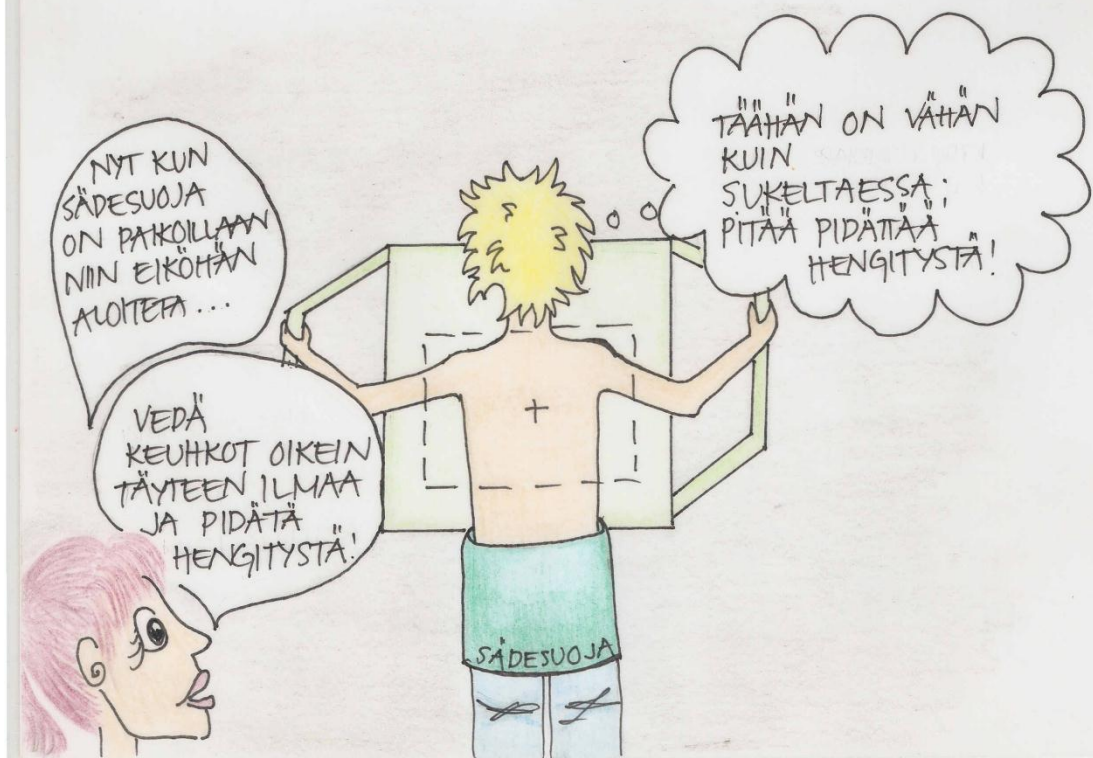 NYT KUN
SÄDESUOJA
ON PAIKOILLAAN
NIIN EIKÖHÄN
ALOITETA...
VEDÄ
KEUHKOT OIKEIN
TÄYTEEN ILMAA
JA PIDÄTÄ
HENGITYSTÄ!
TÄÄHÄN ON VÄHÄN
KUIN
SUKELTAESSA;
PITÄÄ PIDÄTTÄÄ
HENGITYSTÄ!
SÄDESUOJA